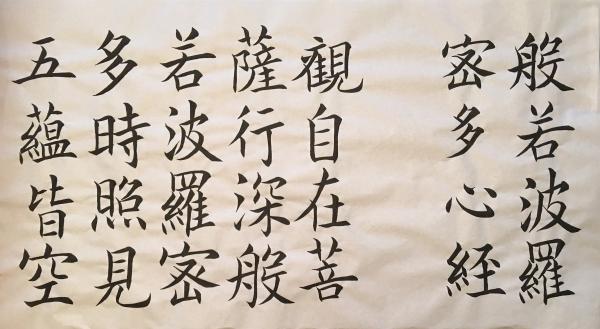 般若波羅
密多心經
觀自在菩
薩行深般
若波羅密
多時照見
五蘊皆空